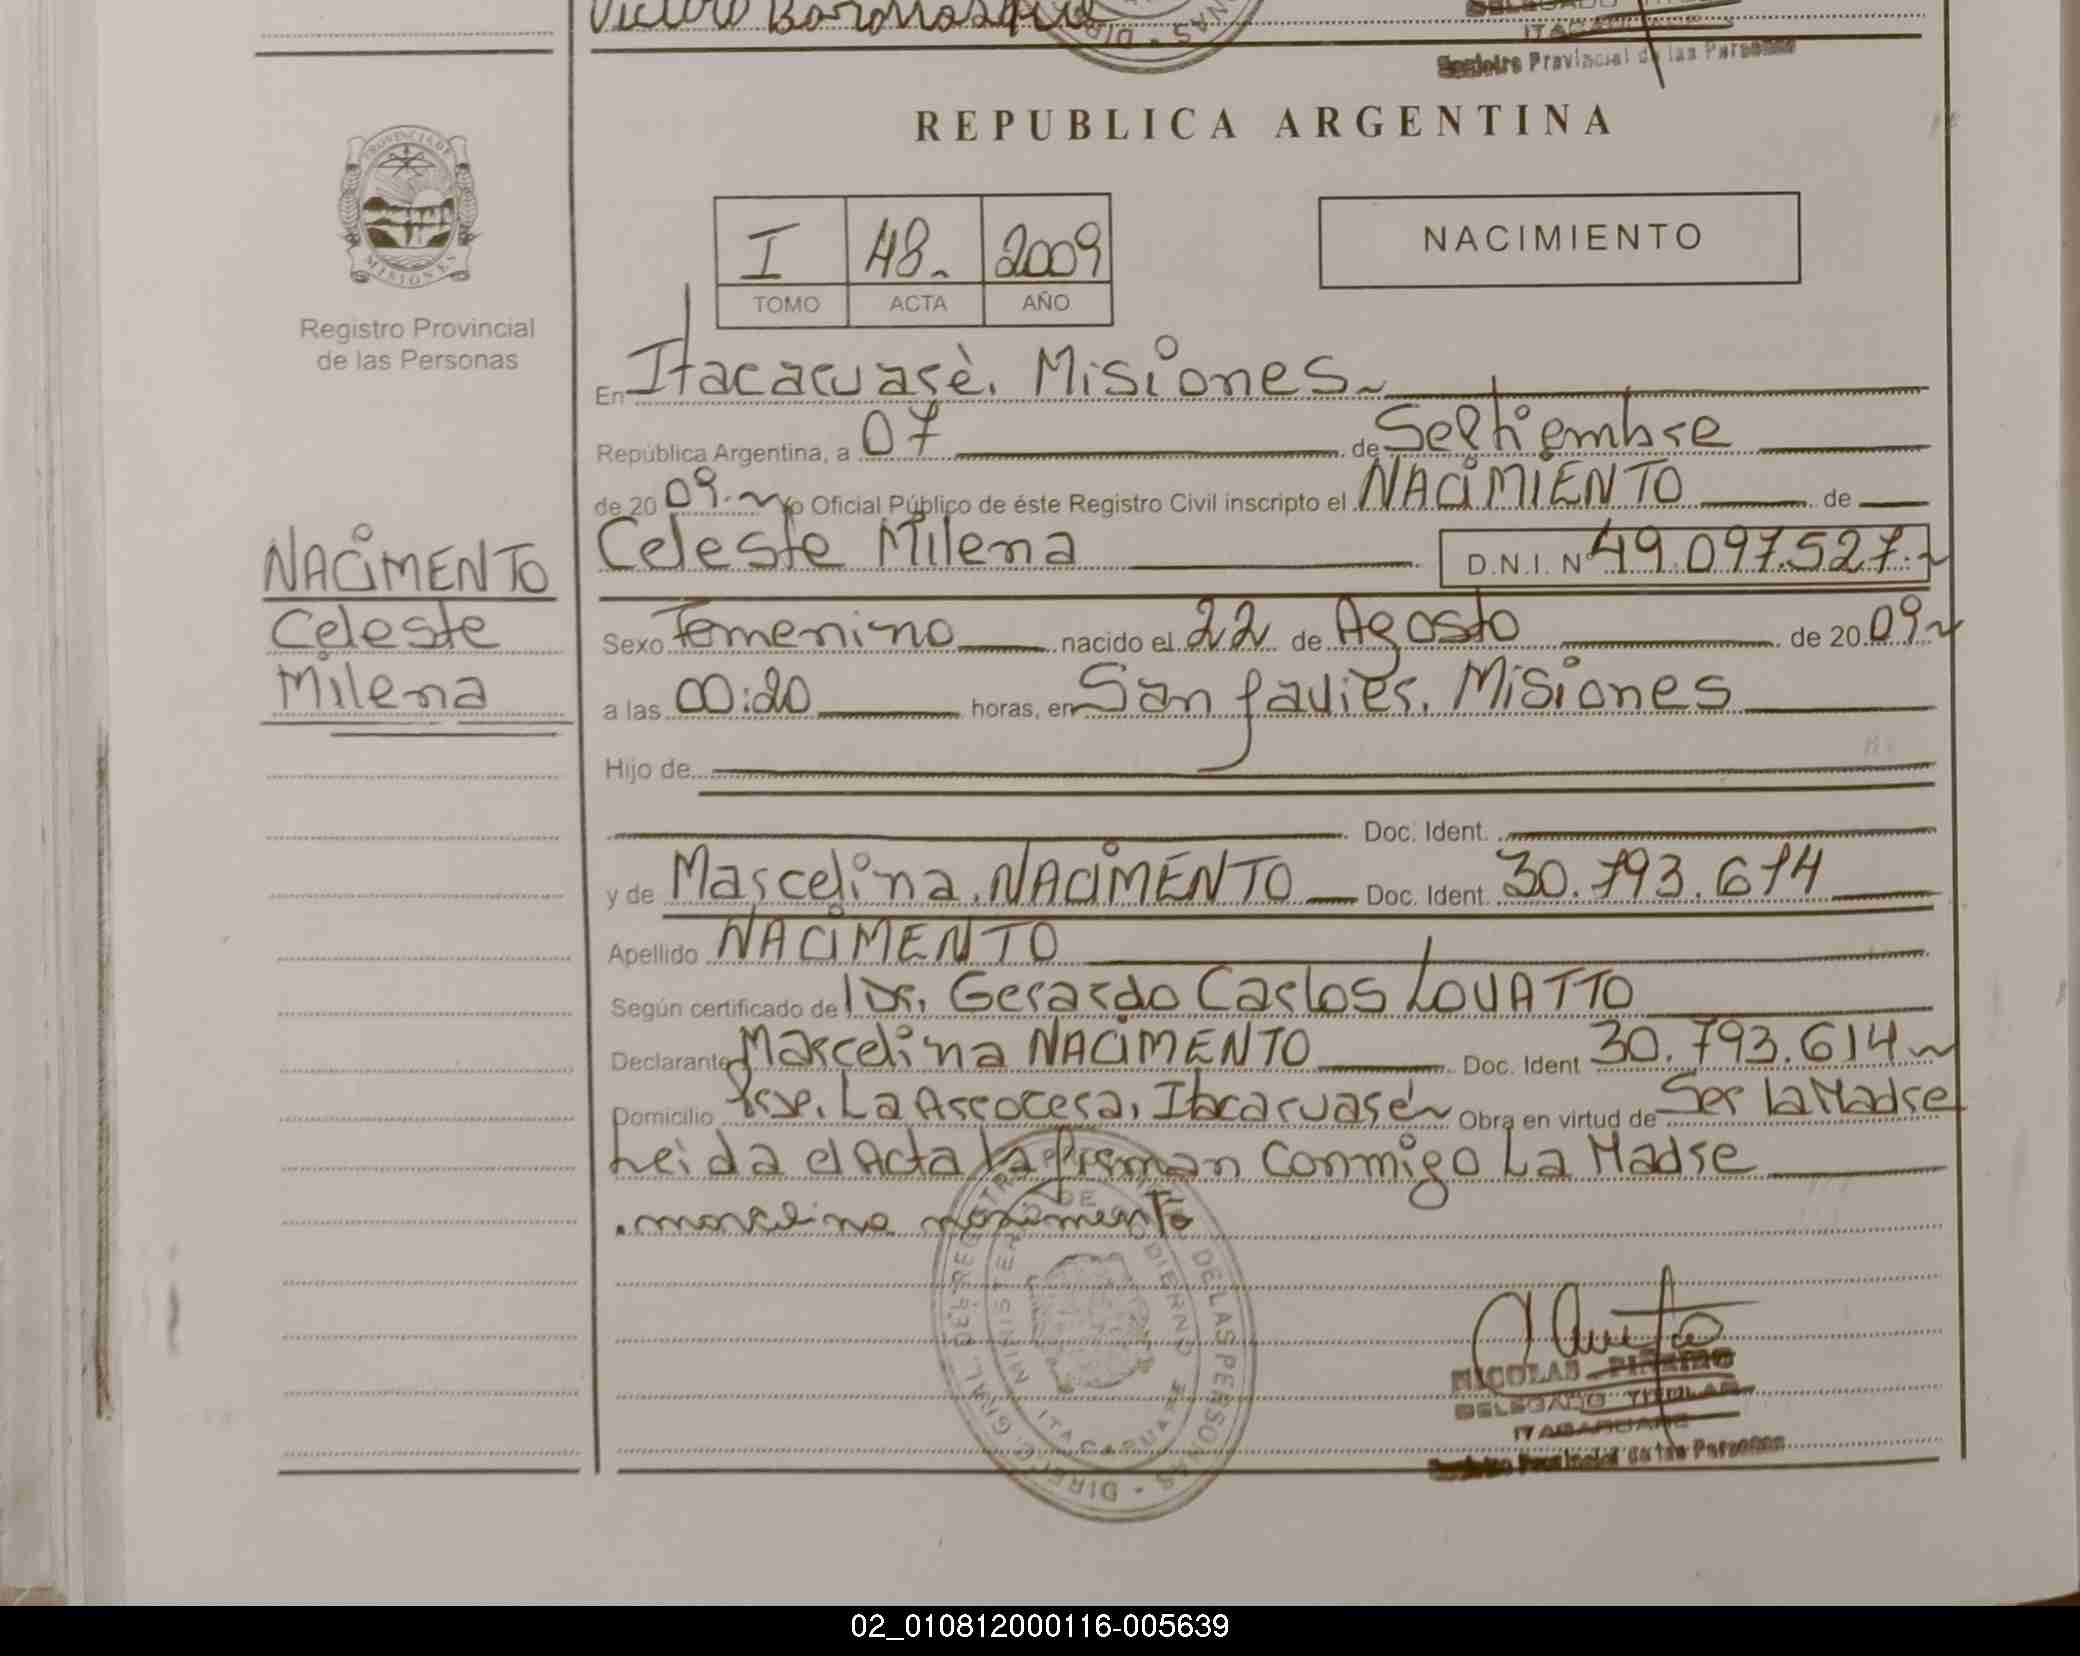 Victor
DIR
ITACARUARE
Registro Provincial de las Personas
REPUBLICA ARGENTINA
PROVINCIA DE
MISIONES
Registro Provincial
de las Personas
I 48 2009
TOMO ACTA AÑO
NACIMIENTO
En Itacaruarè. Misiones
República Argentina, a 07 de Septiembre
de 2009. Yo Oficial Público de éste Registro Civil inscripto el NACIMIENTO de
NACIMENTO
Celeste
Milena
Celeste Milena D.N.I. Nº 49.097.527.
Sexo Femenino nacido el 22 de Agosto de 2009
a las 00:20 horas, en San Javier. Misiones
Hijo de
Doc. Ident.
y de Marcelina. NACIMENTO Doc. Ident. 30.793.614
Apellido NACIMENTO
Según certificado de Dr. Gerardo Carlos LOVATTO
Declarante Marcelina NACIMENTO Doc. Ident 30.793.614
Domicilio La Arrocera, Itacaruaré Obra en virtud de Ser la Madre
Leida el Acta la firman conmigo La Madre
marcelina nacimento
DIREC. GRAL. DEL REGISTRO DE LAS PERSONAS
MINISTERIO DE GOBIERNO
ITACARUARE
NICOLAS PIÑEIRO
DELEGADO TITULAR
ITACARUARE
Registro Provincial de las Personas
02_010812000116-005639